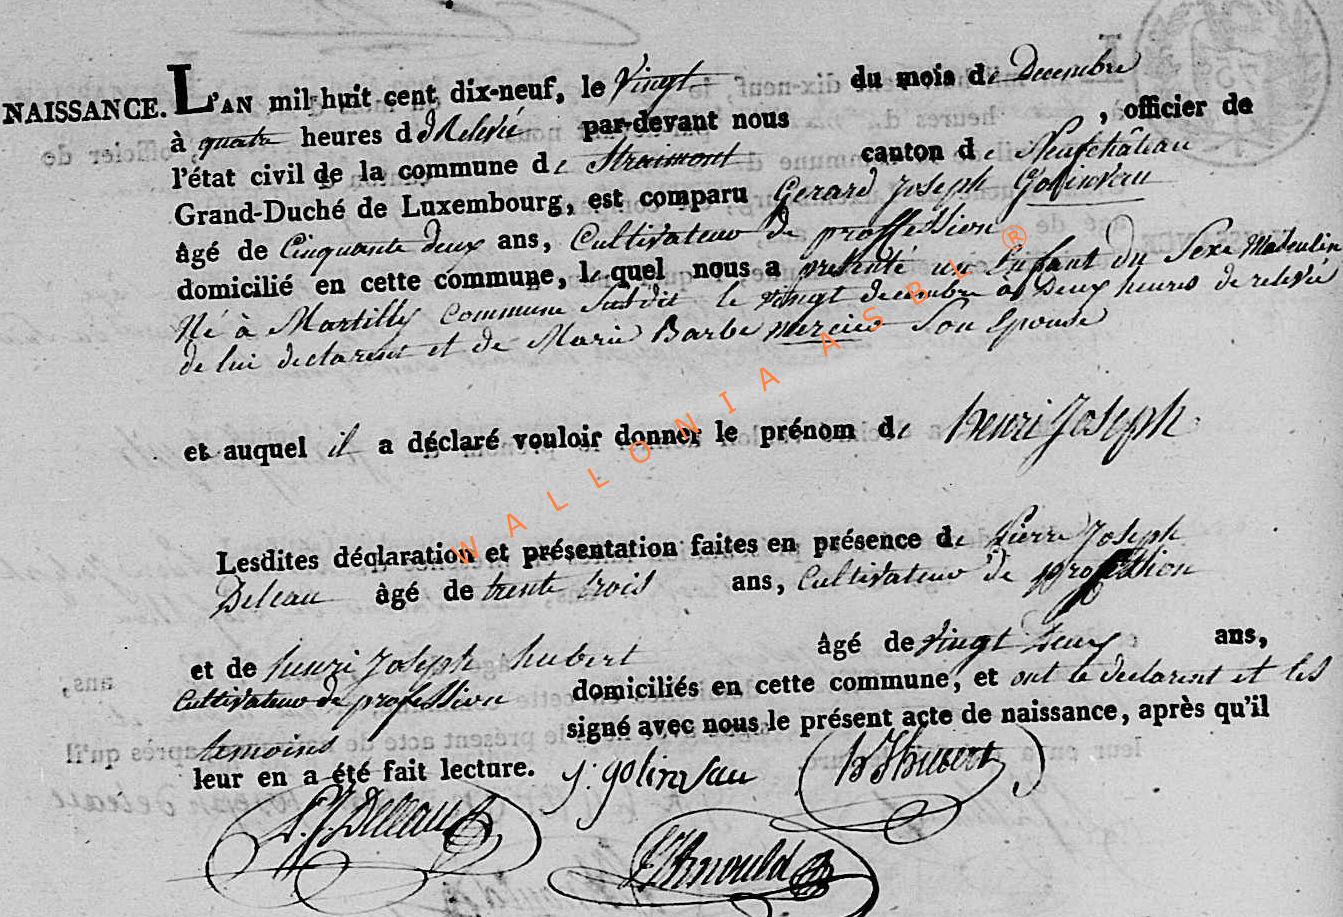 NAISSANCE. L'AN mil huit cent dix-neuf, le Vingt du mois de Decembre
à quatre heures de Relevé par-devant nous , officier de
l'état civil de la commune de Straimont canton de Neufchâteau
Grand-Duché de Luxembourg, est comparu Gerard Joseph Golinveau
âgé de Cinquante deux ans, Cultivateur de proffession
domicilié en cette commune, lequel nous a presenté un Enfant du Sexe Masculin
Né à Martilly commune susdit le vingt decembre a deux heures de relevée
de lui declarent et de Marie Barbe mercier Son Epouse
et auquel il a déclaré vouloir donner le prénom de henri Joseph
Lesdites déclaration et présentation faites en présence de Pierre Joseph
Deleau âgé de trente trois ans, Cultivateur de profession
et de henri Joseph hubert âgé de vingt deux ans,
Cultivateur de profession domiciliés en cette commune, et ont le declarent et les
temoins signé avec nous le présent acte de naissance, après qu'il
leur en a été fait lecture. J. golinvau hJhubert
P. J. Deleau Arnould
WALLONIA ASBL ®